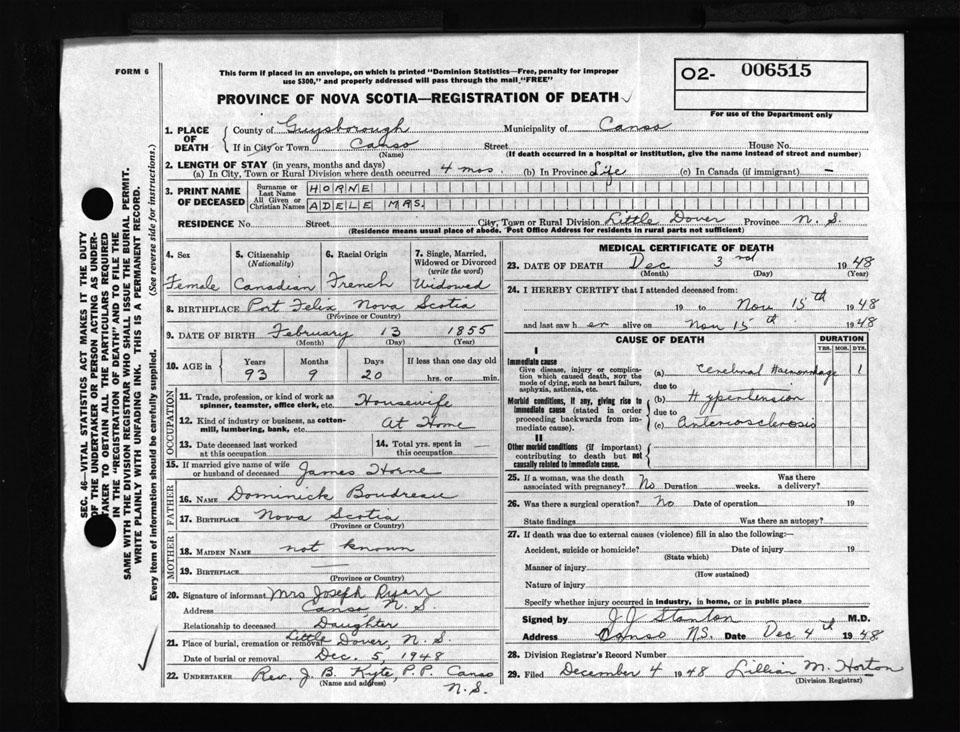 FORM 6
This form if placed in an envelope, on which is printed "Dominion Statistics—Free, penalty for improper
use $300," and properly addressed will pass through the mail "FREE"
O2- 006515
For use of the Department only
PROVINCE OF NOVA SCOTIA—REGISTRATION OF DEATH
1. PLACE OF DEATH
County of Guysborough Municipality of Canso
If in City or Town Canso Street House No.
(Name) (If death occurred in a hospital or institution, give the name instead of street and number)
2. LENGTH OF STAY (in years, months and days)
(a) In City, Town or Rural Division where death occurred 4 mos. (b) In Province Life (c) In Canada (if immigrant) —
3. PRINT NAME OF DECEASED
Surname or Last Name HORNE
All Given or Christian Names ADELE MRS.
RESIDENCE No. Street City, Town or Rural Division Little Dover Province N. S.
(Residence means usual place of abode. Post Office Address for residents in rural parts not sufficient)
4. Sex 5. Citizenship (Nationality) 6. Racial Origin 7. Single, Married, Widowed or Divorced (write the word)
Female Canadian French Widowed
8. BIRTHPLACE Port Felix Nova Scotia
(Province or Country)
9. DATE OF BIRTH February 13 1855
(Month) (Day) (Year)
10. AGE in Years Months Days If less than one day old
93 9 20 hrs. or min.
OCCUPATION
11. Trade, profession, or kind of work as spinner, teamster, office clerk, etc. Housewife
12. Kind of industry or business, as cotton-mill, lumbering, bank, etc. At Home
13. Date deceased last worked at this occupation
14. Total yrs. spent in this occupation —
15. If married give name of wife or husband of deceased James Horne
FATHER
16. NAME Dominick Boudreau
17. BIRTHPLACE Nova Scotia
(Province or Country)
MOTHER
18. MAIDEN NAME not known
19. BIRTHPLACE —
(Province or Country)
20. Signature of informant Mrs Joseph Ryan
Address Canso, N. S.
Relationship to deceased Daughter
21. Place of burial, cremation or removal Little Dover, N. S.
Date of burial or removal Dec. 5, 1948
22. UNDERTAKER Rev. J. B. Kyte, P.P. Canso
(Name and address) N. S.
MEDICAL CERTIFICATE OF DEATH
23. DATE OF DEATH Dec 3rd 1948
(Month) (Day) (Year)
24. I HEREBY CERTIFY that I attended deceased from:
19 to Nov 15th 1948
and last saw her alive on Nov 15th 1948
CAUSE OF DEATH
DURATION
YRS. MOS. DYS.
I
Immediate cause
Give disease, injury or complication which caused death, NOT the mode of dying, such as heart failure, asphyxia, asthenia, etc.
(a) Cerebral Haemorrhage 1
due to
Morbid conditions, if any, giving rise to immediate cause (stated in order proceeding backwards from immediate cause).
(b) Hypertension
due to
(c) Arteriosclerosis
II
Other morbid conditions (if important) contributing to death but not causally related to immediate cause.
25. If a woman, was the death associated with pregnancy? No Duration weeks. Was there a delivery?
26. Was there a surgical operation? No Date of operation 19
State findings Was there an autopsy?
27. If death was due to external causes (violence) fill in also the following:—
Accident, suicide or homicide? Date of injury 19
(State which)
Manner of injury
(How sustained)
Nature of injury
Specify whether injury occurred in industry, in home, or in public place
Signed by J J Stanton M.D.
Address Canso N.S. Date Dec 4th 1948
28. Division Registrar's Record Number
29. Filed December 4 1948 Lillian M. Horton
(Division Registrar)
SEC. 46—VITAL STATISTICS ACT MAKES IT THE DUTY
OF THE UNDERTAKER OR PERSON ACTING AS UNDER-
TAKER TO OBTAIN ALL THE PARTICULARS REQUIRED
IN THE "REGISTRATION OF DEATH" AND TO FILE THE
SAME WITH THE DIVISION REGISTRAR WHO SHALL ISSUE THE BURIAL PERMIT.
WRITE PLAINLY WITH UNFADING INK. THIS IS A PERMANENT RECORD.
Every item of information should be carefully supplied. (See reverse side for instructions.)